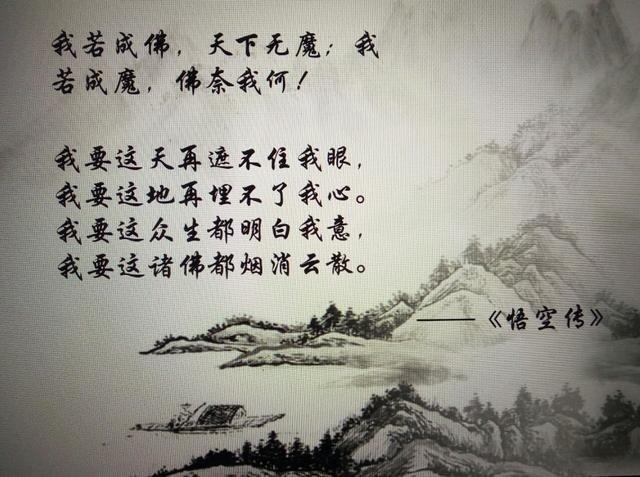 我若成佛，天下无魔；我
若成魔，佛奈我何！
我要这天再遮不住我眼，
我要这地再埋不了我心。
我要这众生都明白我意，
我要这诸佛都烟消云散。
——《悟空传》